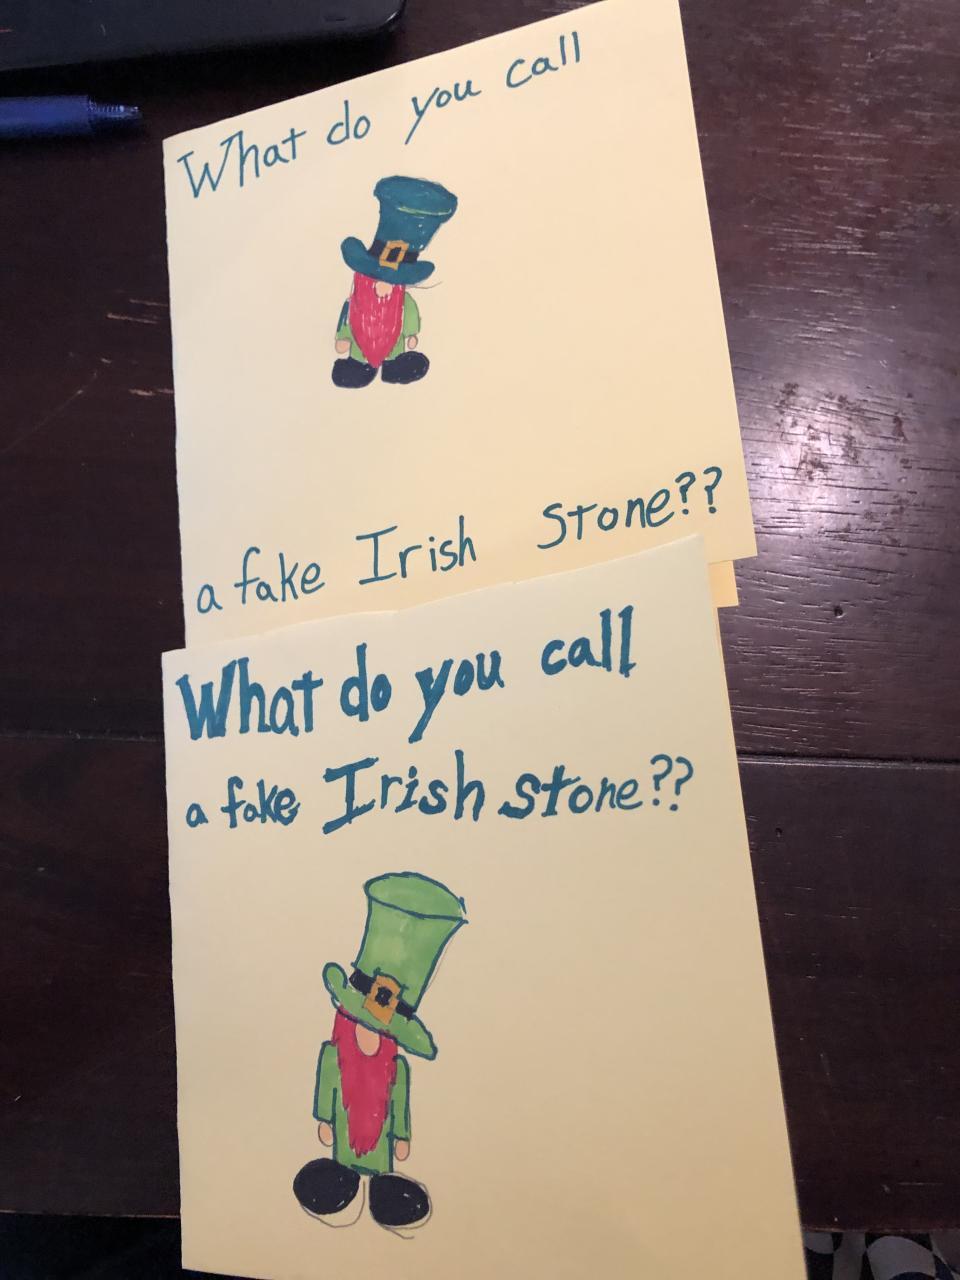 What do you call
a fake Irish Stone??
What do you call
a fake Irish stone??